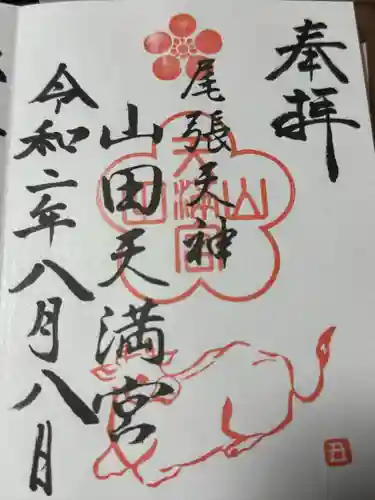 奉拝
尾張天神
山田天満宮
令和二年八月八日
山田天満宮
丑